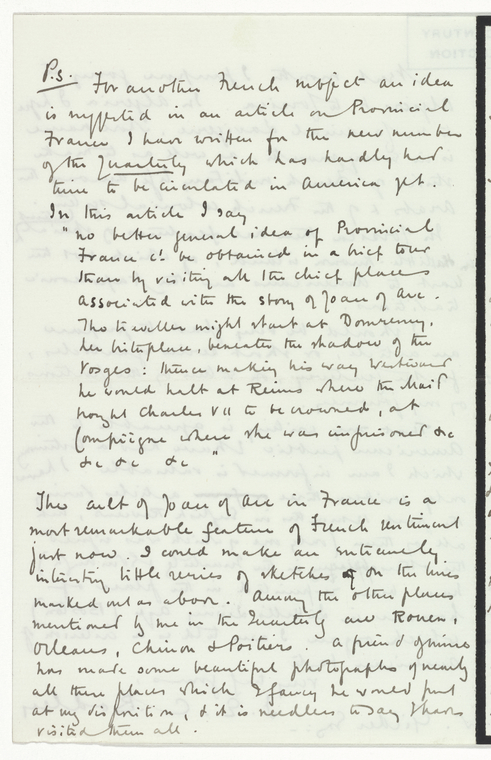 P.s. For another French subject an idea
is suggested in an article on Provincial
France I have written for the new number
of the Quarterly which has hardly had
time to be circulated in America yet.
In this article I say
"no better general idea of Provincial
France cd. be obtained in a brief tour
than by visiting all the chief places
associated with the story of Joan of Arc.
The traveller might start at Domremy,
her birthplace, beneath the shadow of the
Vosges: thence making his way westward
he would halt at Reims where the Maid
brought Charles VII to be crowned, at
Compiègne where she was imprisoned &c
&c &c &c "
The cult of Joan of Arc in France is a
most remarkable feature of French sentiment
just now. I could make an extremely
interesting little series of sketches on the lines
marked out as above. Among the other places
mentioned by me in the Quarterly are Rouen,
Orleans, Chinon & Poitiers a friend of mine
has made some beautiful photographs of nearly
all these places which I fancy he would put
at my disposition, & it is needless to say I have
visited them all.